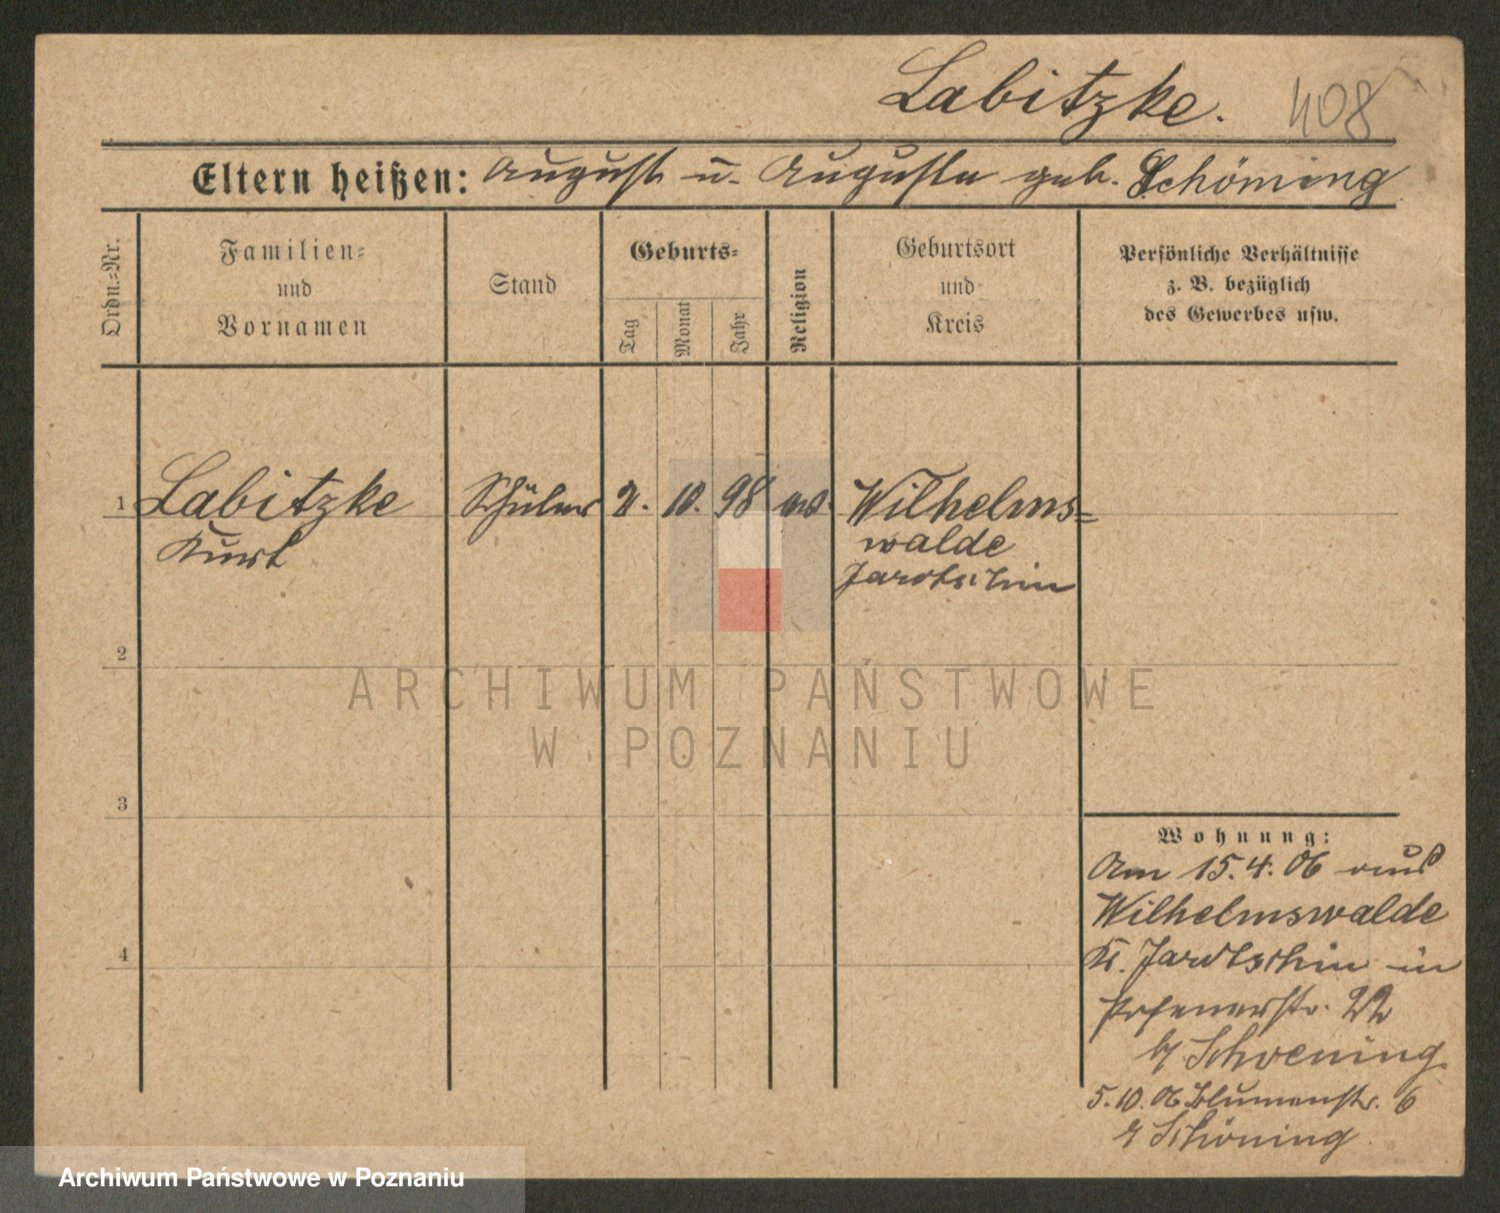 Labitzke. 408
Eltern heißen: August u. Auguste geb. Schöning
Ordn.=Nr.
Familien=
und
Vornamen
Stand
Geburts=
Tag
Monat
Jahr
Religion
Geburtsort
und
Kreis
Persönliche Verhältnisse
z. B. bezüglich
des Gewerbes usw.
1 Labitzke Schüler 2. 10. 98 Wilhelms=
Kurt walde
Jarotschin
2
3
4
Wohnung:
Am 15.4.06 aus
Wilhelmswalde
Kr. Jarotschin in
Posenerstr. 22
b/ Schoening
5.10.06 Blumenstr. 6
Schöning
ARCHIWUM PAŃSTWOWE
W POZNANIU
Archiwum Państwowe w Poznaniu